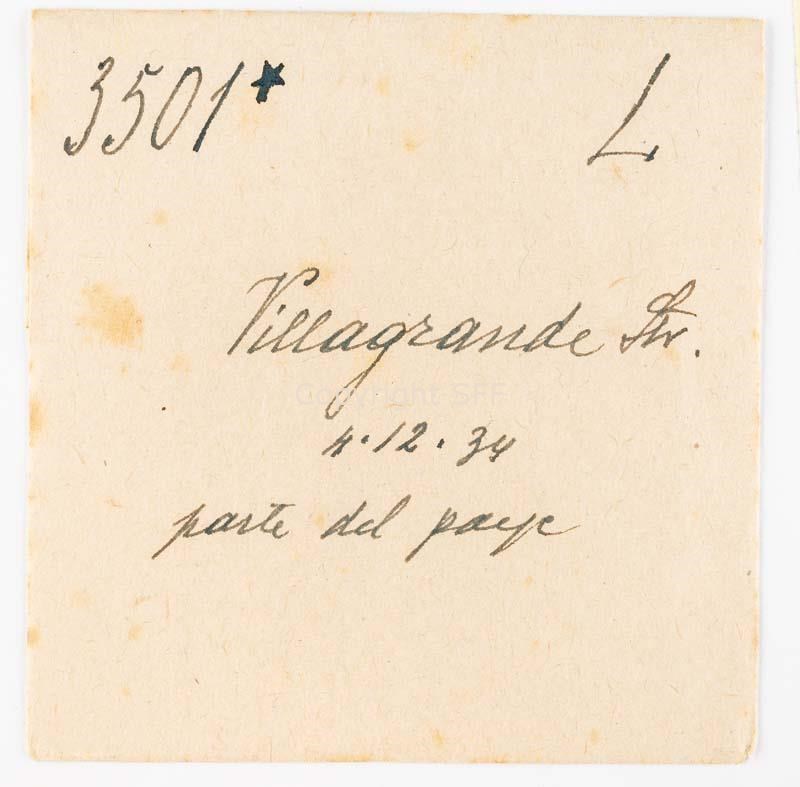 3501* L
Villagrande Str.
Copyright SFF
4.12.34
parte del paese